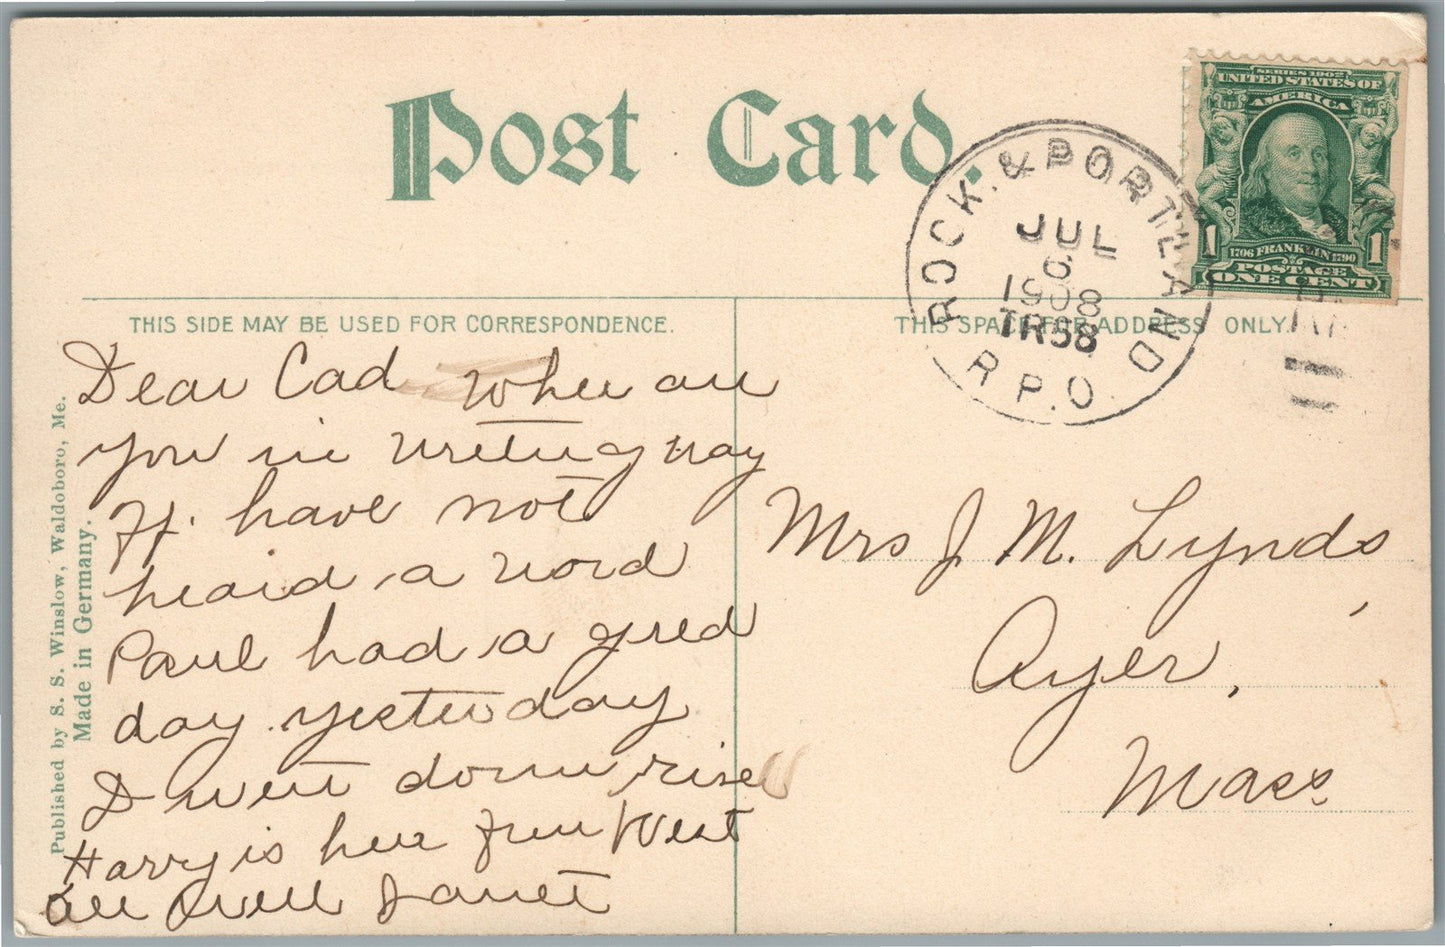 Post Card.
SERIES 1902
UNITED STATES OF
AMERICA
1706 FRANKLIN 1790
POSTAGE
1 ONE CENT 1
ROCK. & PORTLAND
JUL
6
1908
TR58
R.P.O.
THIS SIDE MAY BE USED FOR CORRESPONDENCE.
THIS SPACE FOR ADDRESS ONLY.
Published by S. S. Winslow, Waldoboro, Me.
Made in Germany.
Dear Cad when are
you in writing way
H. have not
heard a word
Paul had a
day yesterday
I went down rise
Harry is here from West
all well Janet
Mrs J. M. Lynds
Ayer,
Mass.